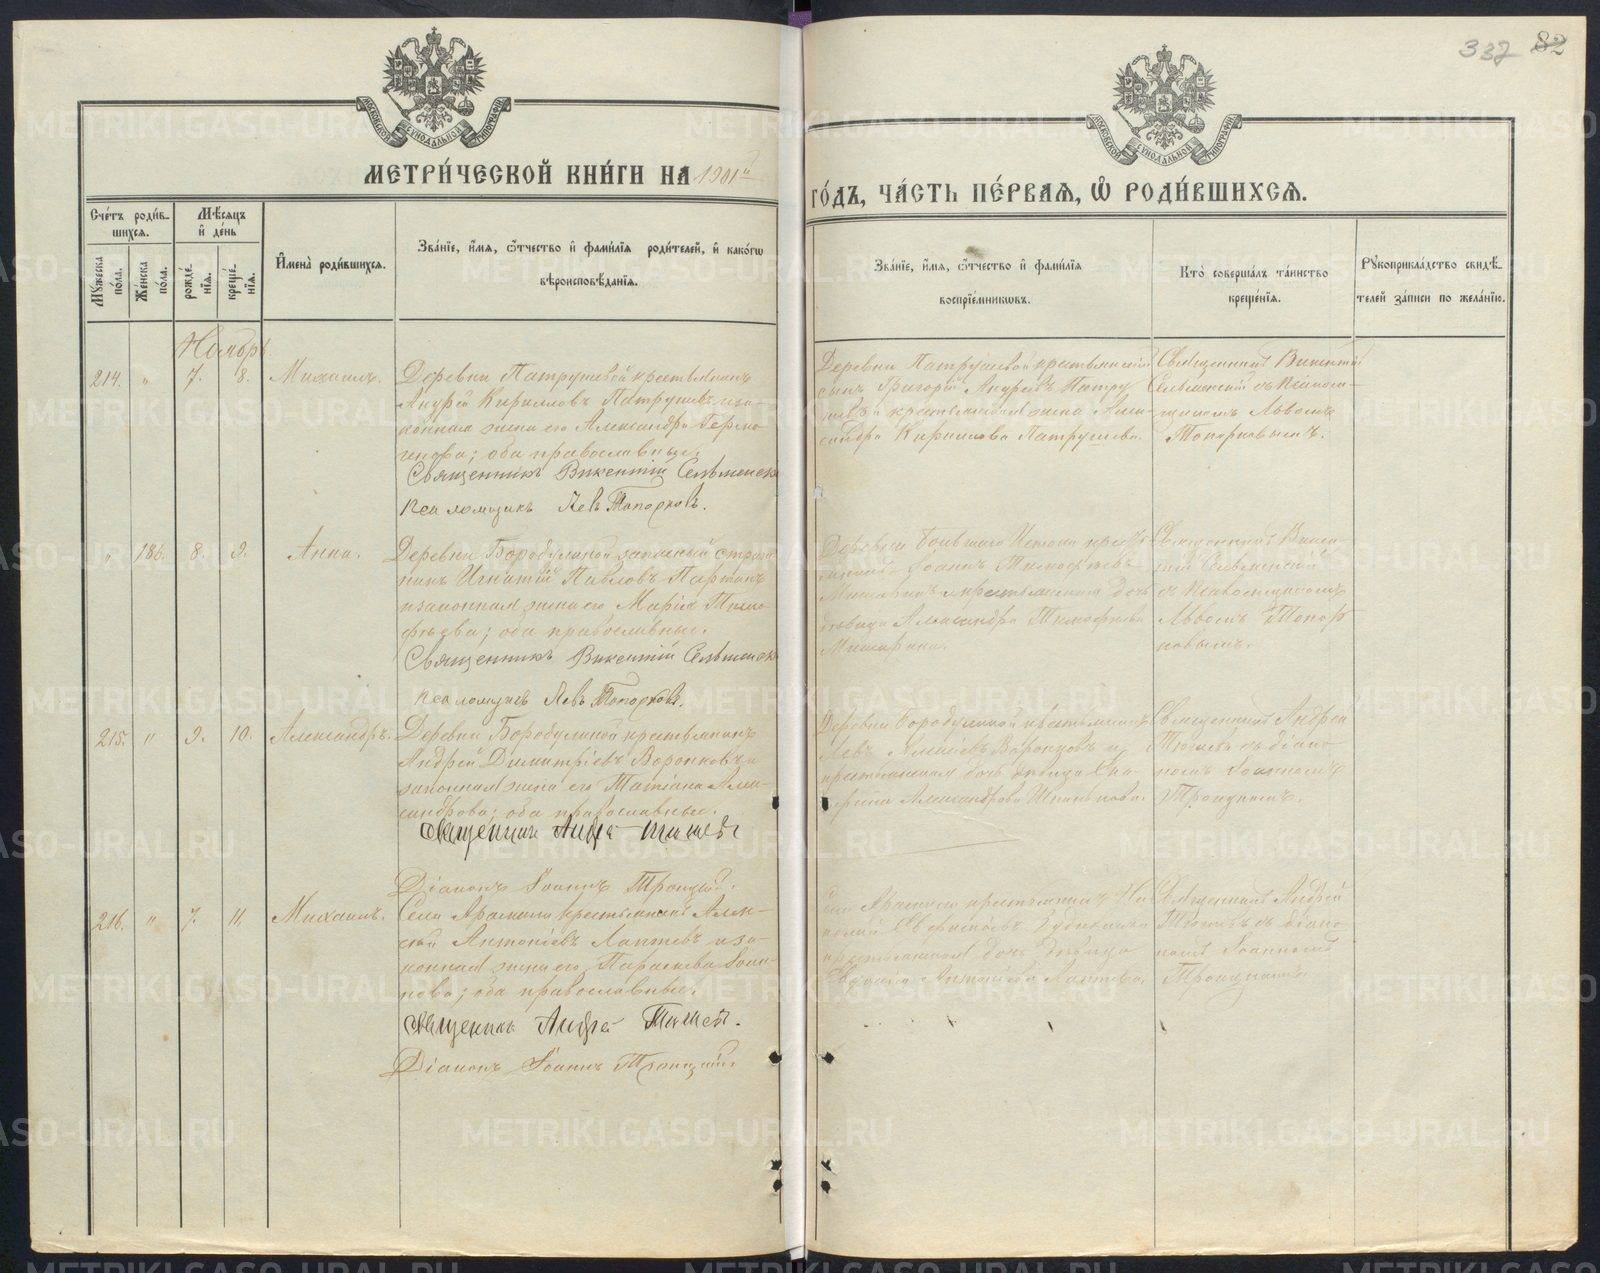 337 82
МОСКОВСКОЙ СУНОДАЛЬНОЙ ТИПОГРАФІИ
МОСКОВСКОЙ СУНОДАЛЬНОЙ ТИПОГРАФІИ
МЕТРИ́ЧЕСКОЙ КНИ́ГИ НА 1901й
ГО́ДЪ, ЧА́СТЬ ПЕ́РВАЯ, Ѡ РОДИ́ВШИХСЯ.
Сче́тъ роди́в-
шихся.
Му́жеска по́ла.
Же́нска по́ла.
Мѣ́сяцъ
и де́нь
рожде́нїя.
креще́нїя.
И҆мена̀ роди́вшихся.
Зва́нїе, и҆́мя, ѻ҆́тчество и҆ фами́лїя роди́телей, и҆ како́гѡ
вѣроисповѣ́данїя.
Зва́нїе, и҆́мя, ѻ҆́тчество и҆ фами́лїя
воспрїе́мникѡвъ.
Кто̀ соверша́лъ та́инство
креще́нїя.
Рꙋкоприкла́дство свидѣ́-
телей за́писи по жела́нїю.
Ноябрь
214. " 7. 8. Михаилъ.
Деревни Патрушевой крестьянинъ
Андрей Кирилловъ Патрушевъ и за-
конная жена его Александра Гермо-
генова; оба православные.
Священникъ Викентій Сельменск
Псаломщикъ Левъ Топорковъ.
Деревни Патрушевой крестьянскій
сынъ Григорій Андреевъ Патру
шевъ и крестьянская жена Алек-
сандра Кириллова Патрушева.
Священникъ Викентій
Сельменскій съ Псалом-
щикомъ Львомъ
Топорковымъ.
" 186. 8. 9. Анна.
Деревни Бородулиной запасный
Игнатій Павловъ
и законная жена его Марія Тимо-
фѣева; оба православные.
Священникъ Викентій Сельменск
Псаломщикъ Левъ Топорковъ.
Деревни Истока
Іоаннъ Тимофѣевъ
и крестьянская дочь
дѣвица Александра Тимофѣева
Священникъ Викен-
тій Сельменскій
съ Псаломщикомъ
Львомъ Топор
ковымъ.
215. " 9. 10. Александръ.
Деревни Бородулиной крестьянинъ
Андрей Димитріевъ Воронковъ и
законная жена его Татіана Алек-
сандрова; оба православные.
священникъ Андрей
Діаконъ Іоаннъ Троицкій.
Деревни Бородулиной крестьянинъ
Левъ Алексѣевъ Воронковъ и
крестьянская дочь дѣвица Ека-
терина Александрова
Священникъ Андрей
съ діако
номъ Іоанномъ
Троицкимъ.
216. " 7. 11. Михаилъ.
Села Арамили крестьянинъ Алек-
сѣй Антоніевъ Лаптевъ и за-
конная жена его Параскева Іоан-
нова; оба православные.
священникъ Андрей
Діаконъ Іоаннъ Троицкій.
Села Арамили крестьянинъ
крестьянская дочь дѣвица
Антоніева Лаптева.
Священникъ Андрей
съ діако
номъ Іоанномъ
Троицкимъ